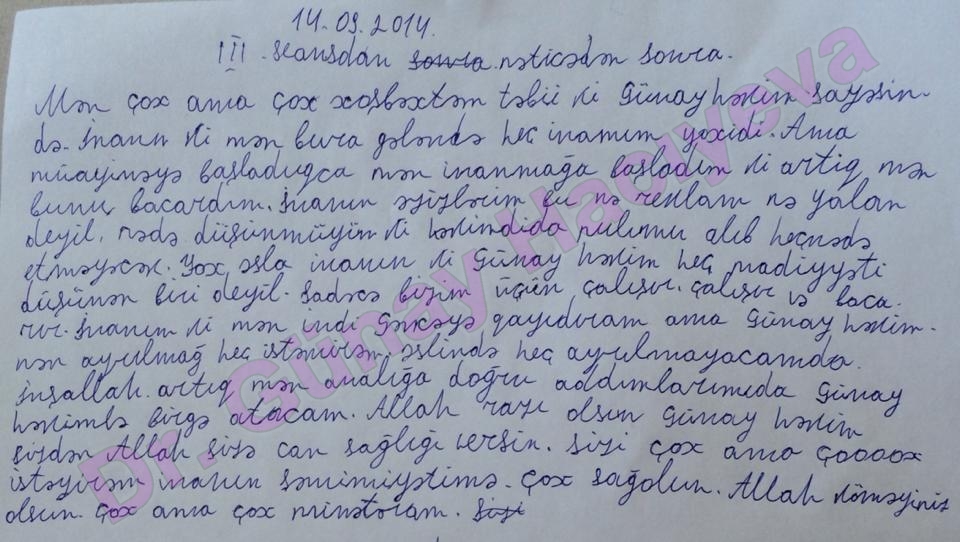 14.09.2014.
III. seansdan sonra nəticədən sonra.
Mən çox ama çox xoşbəxtəm təbii ki Günay həkim sayəsin-
də. İnanın ki mən bura gələndə heç inamım yoxidi. Ama
müayinəyə başladıqca mən inanmağa başladım ki artıq mən
bunu bacardım. İnanın əzizlərim bu nə reklam nə yalan
deyil. nədə düşünmüyün ki həkimdidə pulumu alıb heçnədə
etməyəcək. Yox əsla inanın ki Günay həkim heç madiyyəti
düşünən biri deyil. Sadəcə bizim üçün çalışır. çalışır və baca-
rır. İnanın ki mən indi Gəncəyə qayıdıram ama Günay həkim-
nən ayrılmağ heç istəmirəm. əslində heç ayrılmayacamda.
inşallah. artıq mən analığa doğru addımlarımıda Günay
həkimlə birgə atacam. Allah razı olsun Günay həkim
sizdən Allah sizə can sağlığı versin. Sizi çox ama çoooox
istəyirəm inanın səmimiyətimə. Çox sağolun. Allah köməyiniz
olsun. Çox ama çox minətəram. Sizi
Dr. Günay Hacıyeva